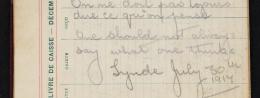 LIVRE DE CAISSE - DÉCEM
On ne doit pas toujours
dire ce qu'on pense
One should not always
say what one thinks
Lynde July 30th
1917